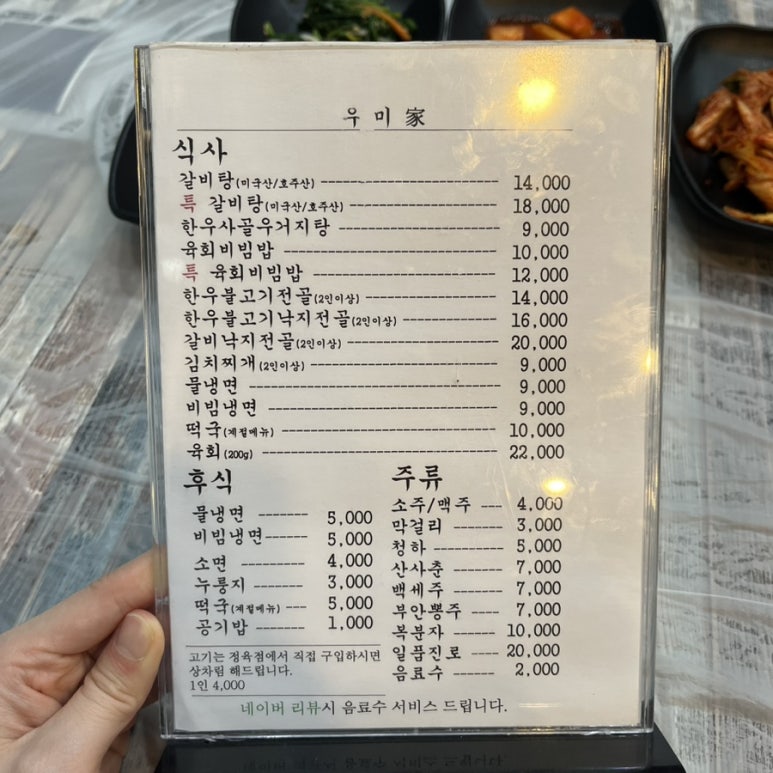 우미家
식사
갈비탕(미국산/호주산) 14,000
특 갈비탕(미국산/호주산) 18,000
한우사골우거지탕 9,000
육회비빔밥 10,000
특 육회비빔밥 12,000
한우불고기전골(2인이상) 14,000
한우불고기낙지전골(2인이상) 16,000
갈비낙지전골(2인이상) 20,000
김치찌개(2인이상) 9,000
물냉면 9,000
비빔냉면 9,000
떡국(계절메뉴) 10,000
육회(200g) 22,000
후식
물냉면 5,000
비빔냉면 5,000
소면 4,000
누룽지 3,000
떡국(계절메뉴) 5,000
공기밥 1,000
고기는 정육점에서 직접 구입하시면
상차림 해드립니다.
1인 4,000
주류
소주/맥주 4,000
막걸리 3,000
청하 5,000
산사춘 7,000
백세주 7,000
부안뽕주 7,000
복분자 10,000
일품진로 20,000
음료수 2,000
네이버 리뷰시 음료수 서비스 드립니다.